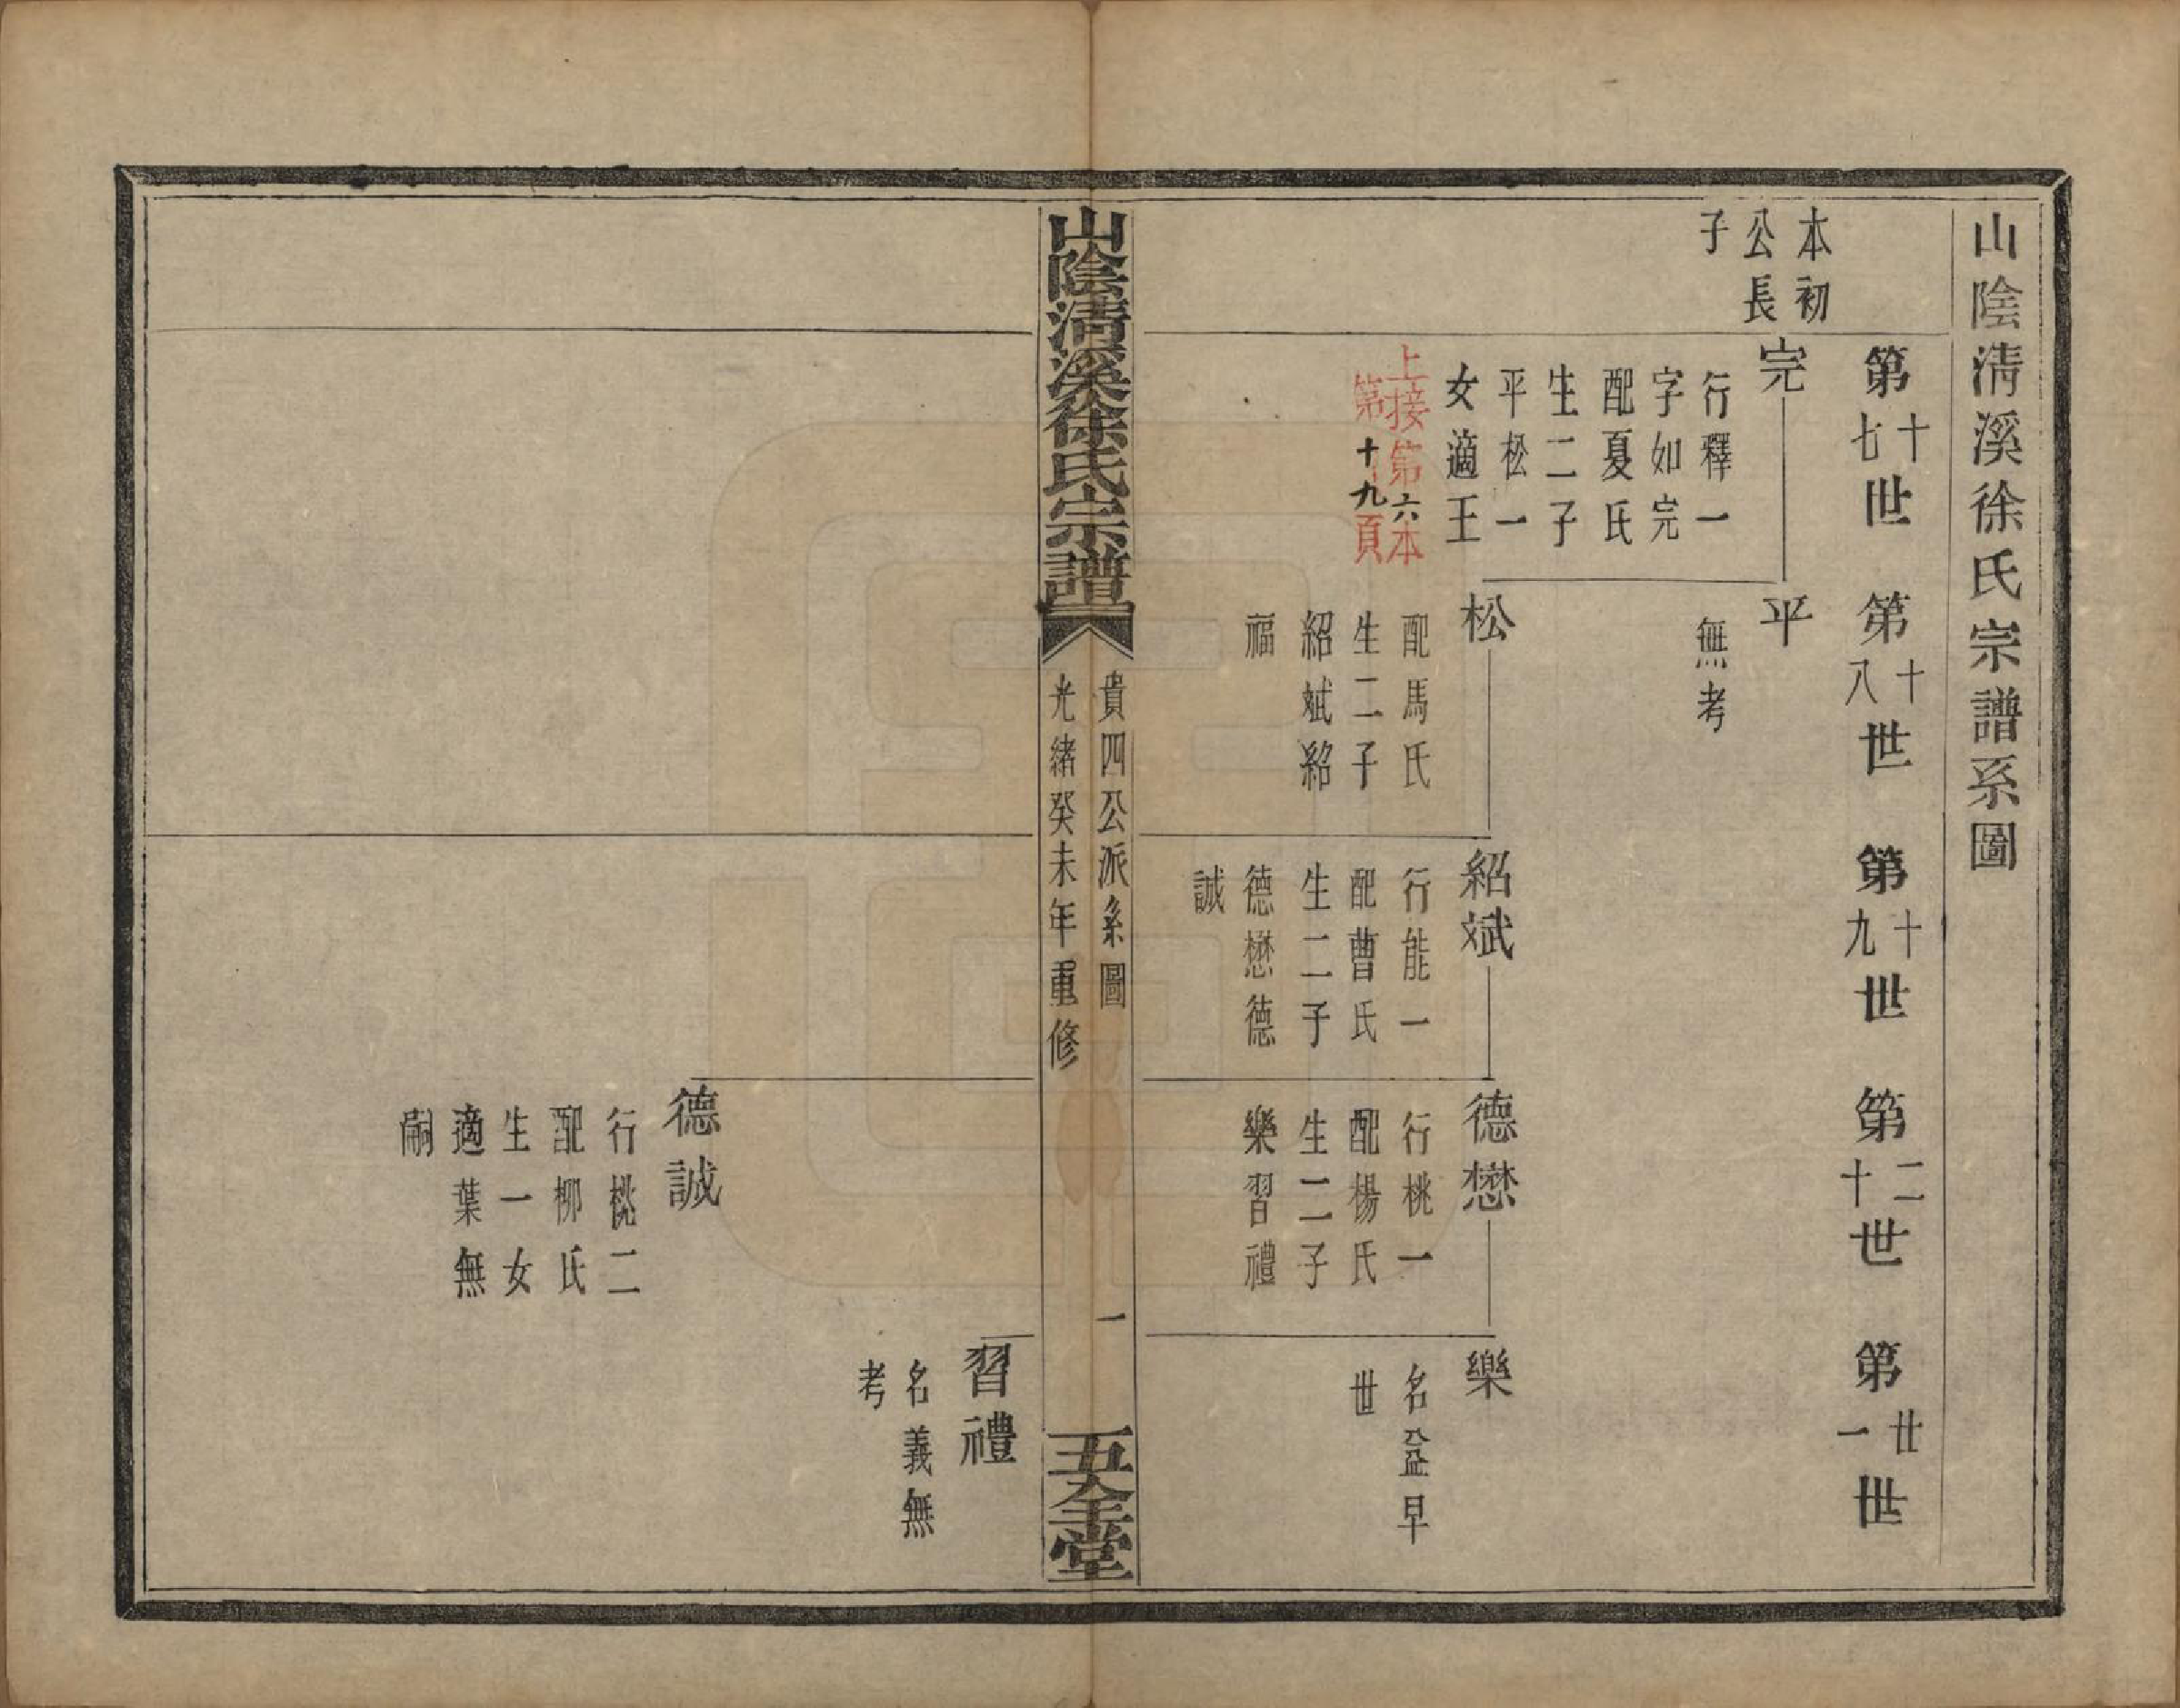 山陰淸溪徐氏宗譜系圖
第十七世
第十八世
第十九世
第二十世
第廿一世
本初
公長
子
完
行釋一
字如完
配夏氏
生二子
平松一
女適王
上接第六本
第十九頁
平
無考
松
配馬氏
生二子
紹斌紹
福
紹斌
行能一
配曹氏
生二子
德懋德
誠
德懋
行桃一
配楊氏
生二子
樂習禮
樂
名益早
世
山陰淸溪徐氏宗譜
貴四公派系圖
光緒癸未年重修
一
五全堂
習禮
名義無
考
德誠
行桃二
配柳氏
生一女
適葉無
嗣